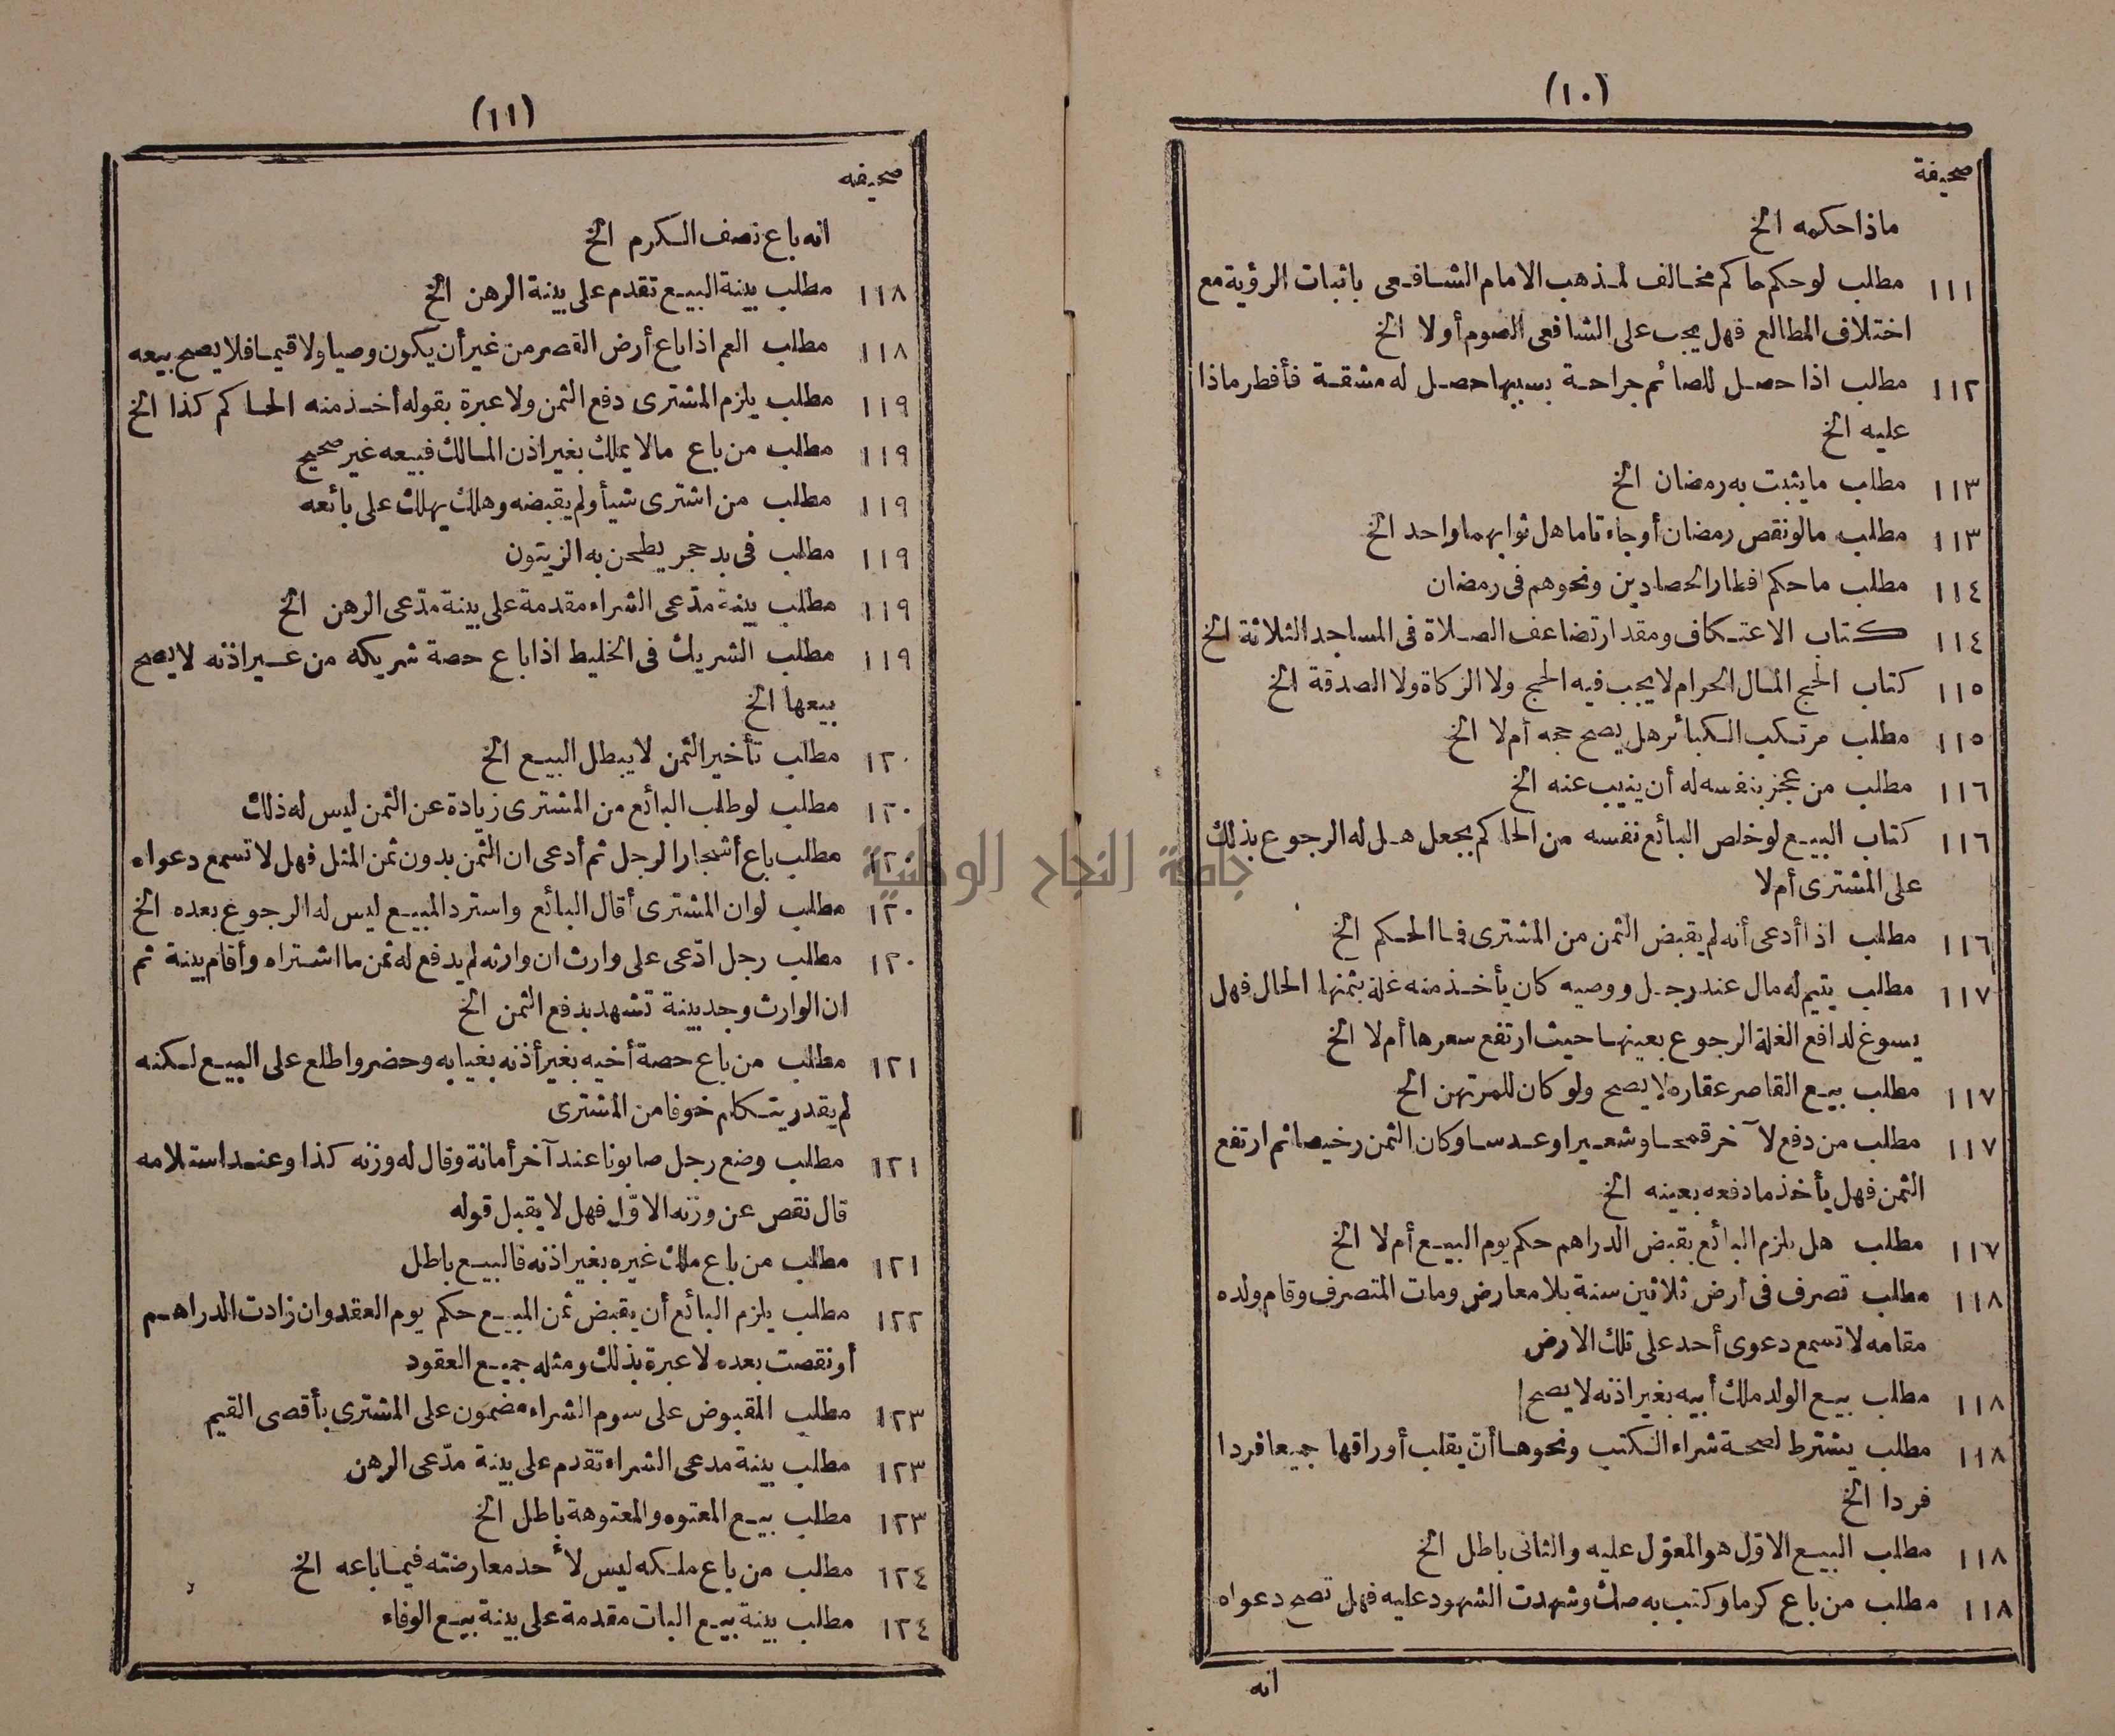 (١٠)
صحيفة
ماذا حكمه الخ
١١١ مطلب لو حكم حاكم مخالف لمذهب الامام الشافعى باثبات الرؤية مع
اختلاف المطالع فهل يجب على الشافعى الصوم أولا الخ
١١٢ مطلب اذا حصل للصائم جراحة بسببها حصل له مشقة فأفطر ماذا
عليه الخ
١١٣ مطلب ما يثبت به رمضان الخ
١١٣ مطلب مالو نقص رمضان أو جاء تاما هل ثوابهما واحد الخ
١١٤ مطلب ما حكم افطار الحصادين ونحوهم فى رمضان
١١٤ كتاب الاعتكاف ومقدار تضاعف الصلاة فى المساجد الثلاثة الخ
١١٥ كتاب الحج المال الحرام لا يجب فيه الحج ولا الزكاة ولا الصدقة الخ
١١٥ مطلب مرتكب الكبائر هل يصح حجه أم لا الخ
١١٦ مطلب من عجز بنفسه له أن ينيب عنه الخ
١١٦ كتاب البيع لو خلص البائع نفسه من الحاكم بجعل هل له الرجوع بذلك
على المشترى أم لا
١١٦ مطلب اذا أدعى أنه لم يقبض الثمن من المشترى فما الحكم الخ
١١٧ مطلب يتيم له مال عند رجل ووصيه كان يأخذ منه غلة بثمنها الحال فهل
يسوغ لدافع الغلة الرجوع بعينها حيث ارتفع سعرها أم لا الخ
١١٧ مطلب بيع القاصر عقاره لا يصح ولو كان للمرتهن الخ
١١٧ مطلب من دفع لآخر قمحا وشعيرا وعدسا وكان الثمن رخيصا ثم ارتفع
الثمن فهل يأخذ ما دفعه بعينه الخ
١١٧ مطلب هل يلزم البائع بقبض الدراهم حكم يوم البيع أم لا الخ
١١٨ مطلب تصرف فى أرض ثلاثين سنة بلا معارض ومات المتصرف وقام ولده
مقامه لا تسمع دعوى أحد على تلك الارض
١١٨ مطلب بيع الولد ملك أبيه بغير اذنه لا يصح
١١٨ مطلب يشترط لصحة شراء الكتب ونحوها أن يقلب أوراقها جميعا فردا
فردا الخ
١١٨ مطلب البيع الاول هو المعوّل عليه والثانى باطل الخ
١١٨ مطلب من باع كرما وكتب به صك وشهدت الشهود عليه فهل تصح دعواه
انه
(١١)
صحيفه
انه باع نصف الكرم الخ
١١٨ مطلب بينة البيع تقدم على بينة الرهن الخ
١١٨ مطلب العم اذا باع أرض القصر من غير أن يكون وصيا ولا قيما فلا يصح بيعه
١١٩ مطلب يلزم المشترى دفع الثمن ولا عبرة بقوله أخذ منه الحاكم كذا الخ
١١٩ مطلب من باع مالا يملك بغير اذن المالك فبيعه غير صحيح
١١٩ مطلب من اشترى شيأ ولم يقبضه وهلك يهلك على بائعه
١١٩ مطلب فى بد حجر يطحن به الزيتون
١١٩ مطلب بينة مدّعى الشراء مقدمة على بينة مدّعى الرهن الخ
١١٩ مطلب الشريك فى الخليط اذا باع حصة شريكه من غير اذنه لا يصح
بيعها الخ
١٢٠ مطلب تأخير الثمن لا يبطل البيع الخ
١٢٠ مطلب لو طلب البائع من المشترى زيادة عن الثمن ليس له ذلك
١٢٠ مطلب باع أشجارا لرجل ثم أدعى ان الثمن بدون ثمن المثل فهل لا تسمع دعواه
١٢٠ مطلب لو ان المشترى أقال البائع واسترد المبيع ليس له الرجوع بعده الخ
١٢٠ مطلب رجل ادّعى على وارث ان وارثه لم يدفع له ثمن ما اشتراه وأقام بينة ثم
ان الوارث وجد بينة تشهد بدفع الثمن الخ
١٢١ مطلب من باع حصة أخيه بغير أذنه بغيابه وحضر واطلع على البيع لكنه
لم يقدر يتكلم خوفا من المشترى
١٢١ مطلب وضع رجل صابونا عند آخر أمانة وقال له وزنه كذا وعند استلامه
قال نقص عن وزنه الاوّل فهل لا يقبل قوله
١٢١ مطلب من باع ملك غيره بغير اذنه فالبيع باطل
١٢٢ مطلب يلزم البائع أن يقبض ثمن المبيع حكم يوم العقد وان زادت الدراهم
أو نقصت بعده لا عبرة بذلك ومثله جميع العقود
١٢٣ مطلب المقبوض على سوم الشراء مضمون على المشترى بأقصى القيم
١٢٣ مطلب بينة مدعى الشراء تقدم على بينة مدّعى الرهن
١٢٣ مطلب بيع المعتوه والمعتوهة باطل الخ
١٢٤ مطلب من باع ملكه ليس لأحد معارضته فيما باعه الخ
١٢٤ مطلب بينة بيع البات مقدمة على بينة بيع الوفاء
جامعة النجاح الوطنية